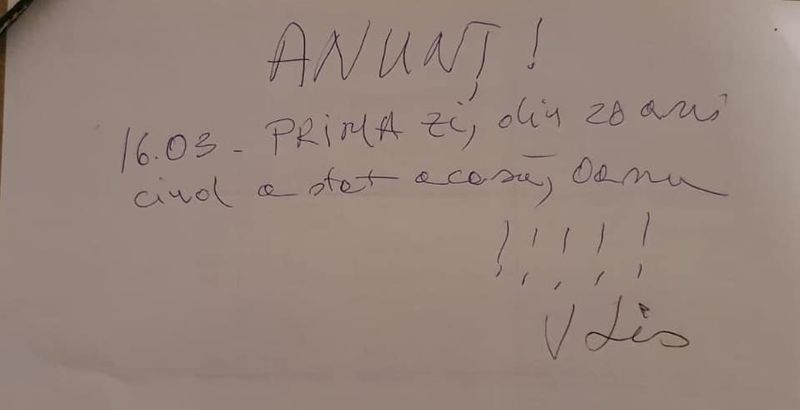 ANUNȚ!
16.03 - PRIMA zi, din 20 ani
cînd a stat acasă, Oana
!!!!!